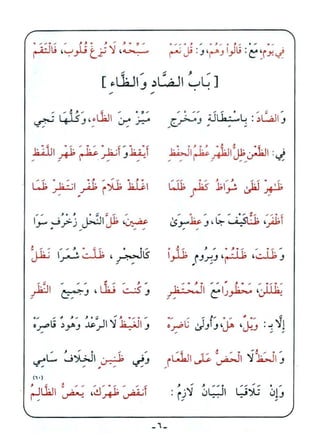 فِي يَوْمٍ، مَعْ: قَالُوا وَهُمْ، وَ: قُلْ نَعَمْ سَبِّحْهُ، لَا تُزِغْ قُلُوبَ، فَالْتَقَمْ
[ بَابُ الضَّادِ وَالظَّاءِ ]
وَالضَّادَ: بِاسْتِطَالَةٍ وَمَخْرَجِ مَيِّزْ مِنَ الظَّاءِ، وَكُلُّهَا تَجِي
فِي: الظَّعْنِ ظِلُّ الظُّهْرِ عُظْمُ الْحِفْظِ أَيْقِظْ وَأَنْظِرْ عَظْمَ ظَهْرِ اللَّفْظِ
ظَاهِرْ لَظَى شُوَاظُ كَظْمٍ ظَلَمَا اغْلُظْ ظَلَامَ ظُفْرٍ انْتَظِرْ ظَمَا
أَظْفَرَ، ظَنًّا كَيْفَ جَا، وَعِظْ سِوَى عِضِينَ، ظَلَّ النَّحْلُ زُخْرُفٍ سَوَا
وَظَلْتَ، ظَلْتُمْ، وَبِرُومٍ ظَلُّوا كَالْحِجْرِ، ظَلَّتْ شُعَرَا نَظَلُّ
يَظْلَلْنَ، مَحْظُورًا مَعَ الْمُحْتَظِرِ وَكُنْتَ فَظًّا، وَجَمِيعِ النَّظَرِ
إِلَّا بِـ: وَيْلٌ، هَلْ، وَأُولَى نَاضِرَهْ وَالْغَيْظِ لَا الرَّعْدُ وَهُودٌ قَاصِرَهْ
وَالْحَظِّ لَا الْحَضِّ عَلَى الطَّعَامِ وَفِي ظَنِينٍ الْخِلَافُ سَامِي
(٦٠)
وَإِنْ تَلَاقَيَا الْبَيَانُ لَازِمُ: أَنْقَضَ ظَهْرَكَ، يَعَضُّ الظَّالِمُ
-٦-